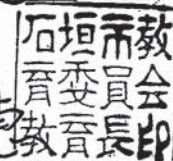 石垣市教
育委員会
教育長印